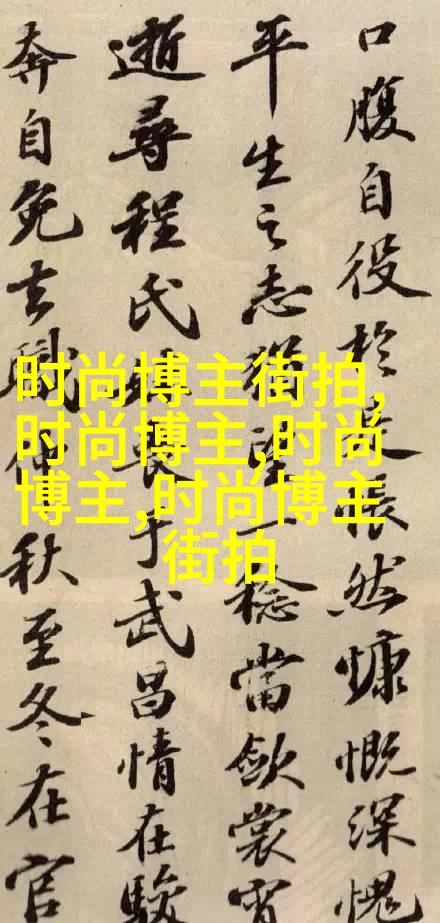 时尚博主街拍,
时尚博主,时尚
博主,时尚博主
街拍
口腹自役於是悵然慷慨深愧
平生之志猶望一稔當斂裳宵
逝尋程氏妹喪于武昌情在駿
奔自免去職仲秋至冬在官